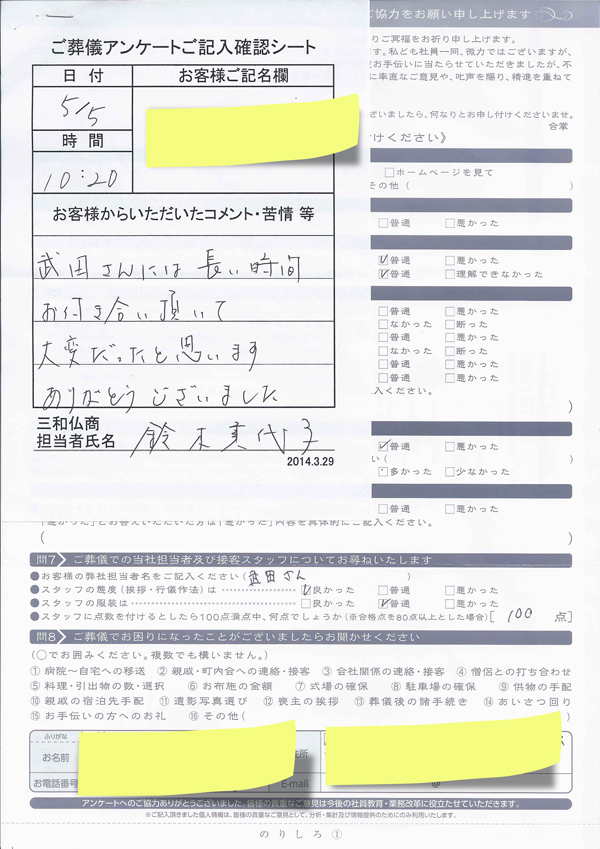 ご葬儀アンケートご記入確認シート
日 付
お客様ご記名欄
5/5
時 間
10:20
お客様からいただいたコメント・苦情 等
武田さんには 長い時間
お付き合い頂いて
大変だったと思います
ありがとうございました
三和仏商
担当者氏名
鈴木美代子
2014.3.29
ご協力をお願い申し上げます
りご冥福をお祈り申し上げます。
す。私ども社員一同、微力ではございますが、
お手伝いに当たらせていただきましたが、不
に率直なご意見や、叱声を賜り、精進を重ねて
ざいましたら、何なりとお申し付けくださいませ。
合掌
付けください》
□ホームページを見て
その他（ ）
□普通 □悪かった
□普通 □悪かった
□普通 □理解できなかった
□普通 □悪かった
□なかった □断った
□普通 □悪かった
□なかった □断った
□普通 □悪かった
□普通 □悪かった
入ください。
）
□普通 □悪かった
い（ ）
□多かった □少なかった
□普通 □悪かった
「悪かった」とお答えいただいた方は「悪かった」内容を具体的にご記入ください。
（ ）
問7 ご葬儀での当社担当者及び接客スタッフについてお尋ねいたします
●お客様の弊社担当者名をご記入ください（武田さん ）
●スタッフの態度（挨拶・行儀作法）は □良かった □普通 □悪かった
●スタッフの服装は □良かった □普通 □悪かった
●スタッフに点数を付けるとしたら100点満点中、何点でしょうか（※合格点を80点以上とした場合）［ 100 点］
問8 ご葬儀でお困りになったことがございましたらお聞かせください
（○でお囲みください。複数でも構いません。）
① 病院～自宅への移送 ② 親戚・町内会への連絡・接客 ③ 会社関係の連絡・接客 ④ 僧侶との打ち合わせ
⑤ 料理・引出物の数・選択 ⑥ お布施の金額 ⑦ 式場の確保 ⑧ 駐車場の確保 ⑨ 供物の手配
⑩ 親戚の宿泊先手配 ⑪ 遺影写真選び ⑫ 喪主の挨拶 ⑬ 葬儀後の諸手続き ⑭ あいさつ回り
⑮ お手伝いの方へのお礼 ⑯ その他（ ）
ふりがな
お名前
住所
お電話番号
E-mail
@
アンケートへのご協力ありがとうございました。皆様の貴重なご意見は今後の社員教育・業務改革に役立たせていただきます。
※ご記入頂きました個人情報は、皆様の貴重なご意見として、分析・集計及び情報提供のためにのみ利用いたします。
のりしろ①